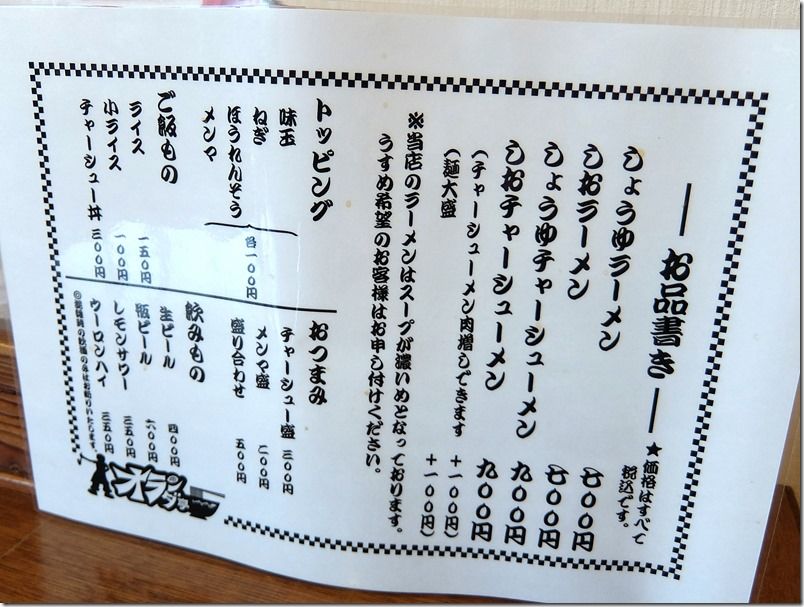 お品書き
★価格はすべて
税込です。
しょうゆラーメン 七〇〇円
しおラーメン 七〇〇円
しょうゆチャーシューメン 九〇〇円
しおチャーシューメン 九〇〇円
(チャーシューメン肉増しできます +一〇〇円)
(麺大盛 +一〇〇円)
※当店のラーメンはスープが濃いめとなっております。
うすめ希望のお客様はお申し付けください。
トッピング
味玉
ねぎ
ほうれんそう
メンマ
各一〇〇円
ご飯もの
ライス 一五〇円
小ライス 一〇〇円
チャーシュー丼 三〇〇円
おつまみ
チャーシュー盛 三〇〇円
メンマ盛 二〇〇円
盛り合わせ 五〇〇円
飲みもの
生ビール 四〇〇円
瓶ビール 六〇〇円
レモンサワー 三五〇円
ウーロンハイ 三五〇円